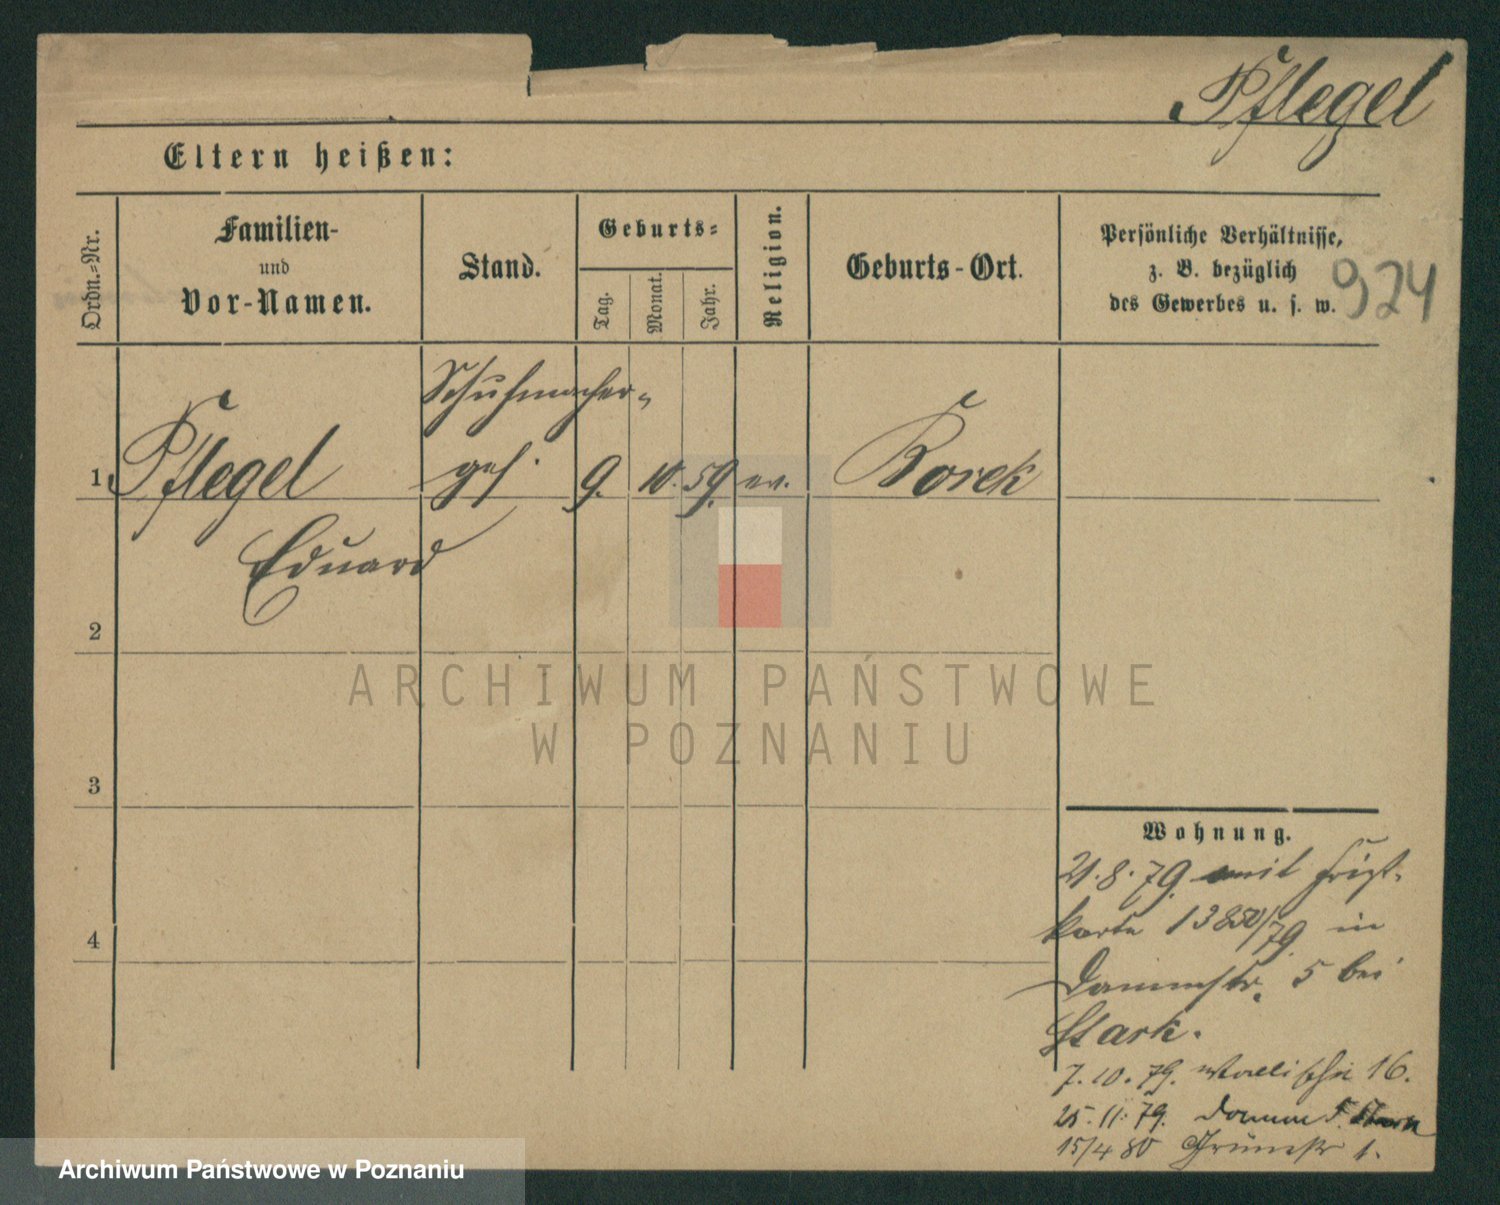 Pflegel
Eltern heißen:
Ordn.=Nr.
Familien-
und
Vor-Namen.
Stand.
Geburts=
Tag.
Monat.
Jahr.
Religion.
Geburts-Ort.
Persönliche Verhältnisse,
z. B. bezüglich
des Gewerbes u. s. w.
924
1
Pflegel
Schuhmacher-
ges.
9.
10.
59.
ev.
Borek
Eduard
2
3
4
Wohnung.
21.8.79. mit
karte 13850/79. in
Dammstr. 5 bei
Stark.
7.10.79. Wallischei 16.
25.11.79. Damm 5. Stark
15/4 80 Grünestr 1.
ARCHIWUM PAŃSTWOWE
W POZNANIU
Archiwum Państwowe w Poznaniu